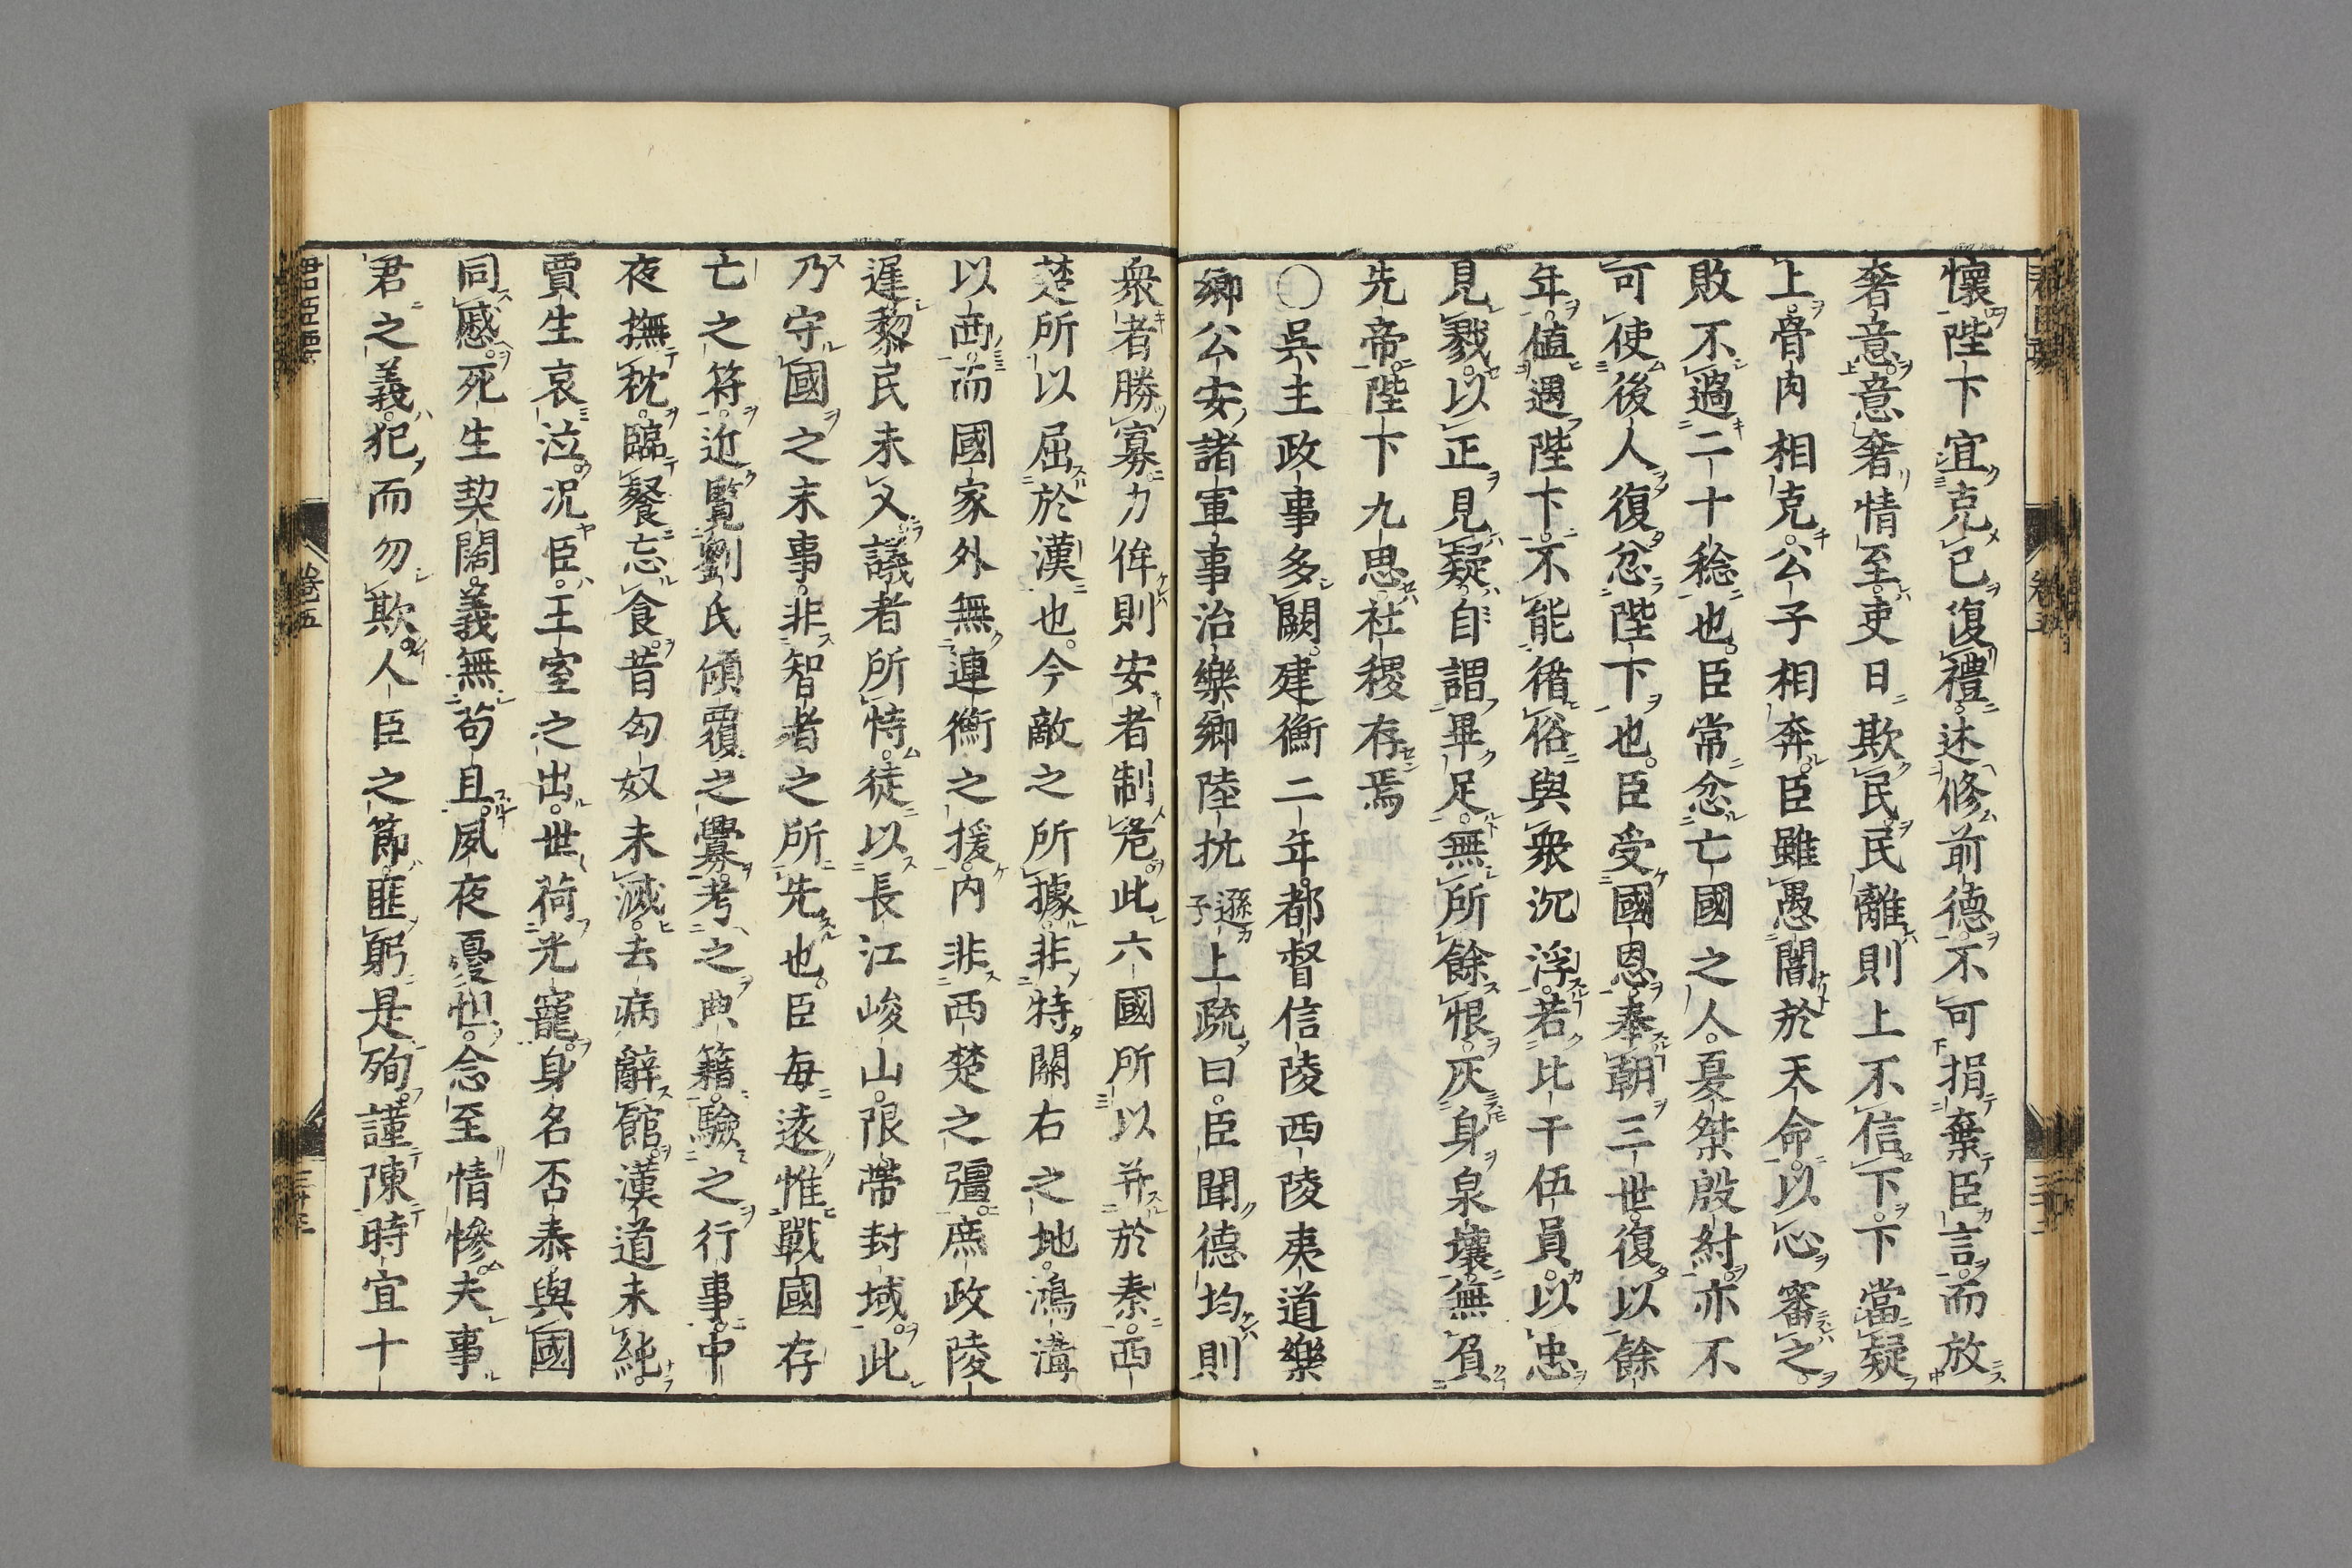 懷陛下宜克己復禮述修前德不可捐棄臣言而放
奢意意奢情至吏日欺民民離則上不信下下當疑
上骨肉相克公子相奔臣雖愚闇於天命以心審之
敗不過二十稔也臣常忿亡國之人夏桀殷紂亦不
可使後人復忿陛下也臣受國恩奉朝三世復以餘
年値遇陛下不能循俗與衆沉浮若比干伍員以忠
見戮以正見疑自謂畢足無所餘恨灰身泉壤無負
先帝陛下九思社稷存焉
〇吳主政事多闕建衡二年都督信陵西陵夷道樂
鄉公安諸軍事治樂鄉陸抗遜子上疏曰臣聞德均則
衆者勝寡力侔則安者制危此六國所以并於秦西
楚所以屈於漢也今敵之所據非特關右之地鴻溝
以西而國家外無連衡之援内非西楚之彊庶政陵
遲黎民未乂議者所恃徒以長江峻山限帶封域此
乃守國之末事非智者之所先也臣每遠惟戰國存
亡之符近覽劉氏傾覆之釁考之典籍驗之行事中
夜撫枕臨餐忘食昔匈奴未滅去病辭館漢道未純
賈生哀泣况臣王室之出世荷光寵身名否泰與國
同慼死生契闊義無苟且夙夜憂怛念至情慘夫事
君之義犯而勿欺人臣之節匪躬是殉謹陳時宜十
君臣要
卷五
三十三